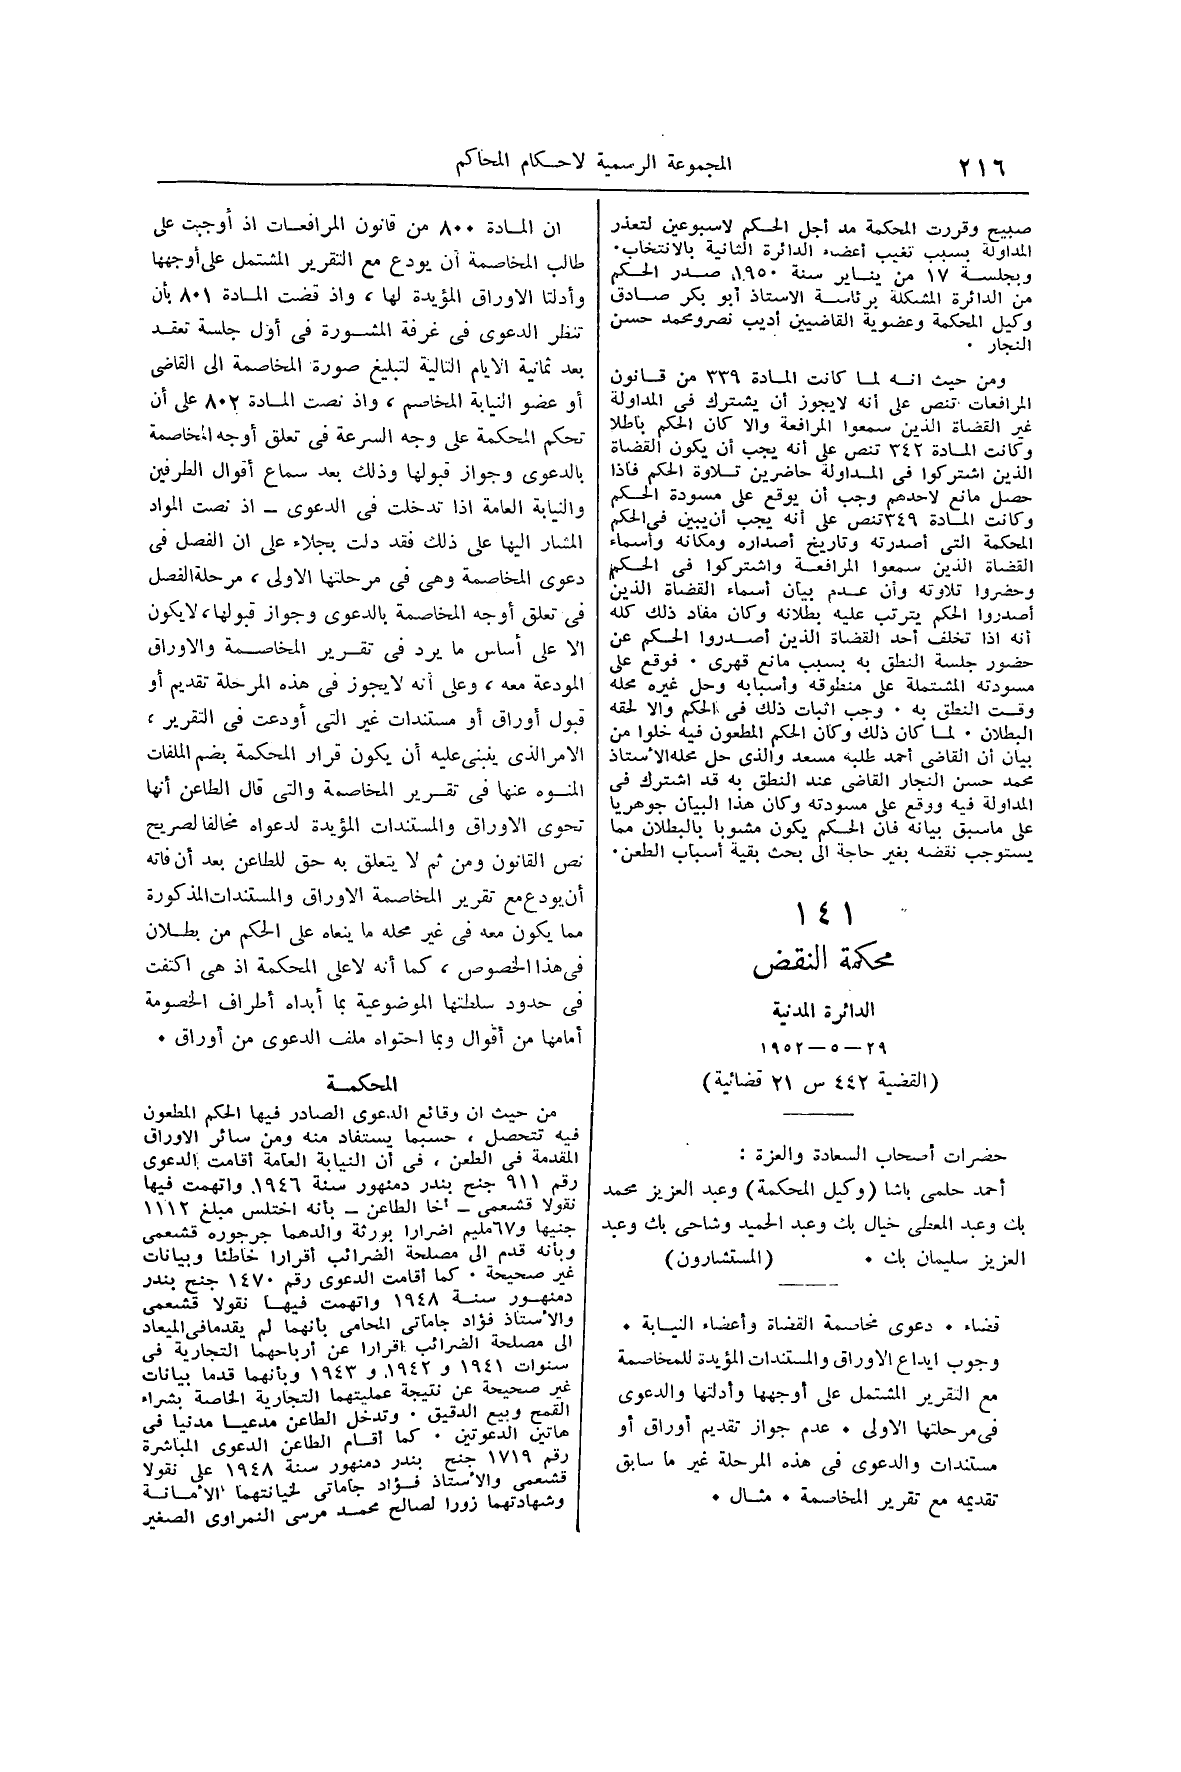 ٢١٦
المجموعة الرسمية لاحكام المحاكم
صبيح وقررت المحكمة مد أجل الحكم لاسبوعين لتعذر
المداولة بسبب تغيب أعضاء الدائرة الثانية بالانتخاب.
وبجلسة ١٧ من يناير سنة ١٩٥٠، صدر الحكم
من الدائرة المشكلة برئاسة الاستاذ أبو بكر صادق
وكيل المحكمة وعضوية القاضيين أديب نصر ومحمد حسن
النجار .
ومن حيث انه لما كانت المادة ٣٣٩ من قانون
المرافعات تنص على أنه لايجوز أن يشترك فى المداولة
غير القضاة الذين سمعوا المرافعة والا كان الحكم باطلا
وكانت المادة ٣٤٢ تنص على أنه يجب أن يكون القضاة
الذين اشتركوا فى المداولة حاضرين تلاوة الحكم فاذا
حصل مانع لاحدهم وجب أن يوقع على مسودة الحكم
وكانت المادة ٣٤٩ تنص على أنه يجب أن يبين فى الحكم
المحكمة التى أصدرته وتاريخ أصداره ومكانه وأسماء
القضاة الذين سمعوا المرافعة واشتركوا فى الحكم
وحضروا تلاوته وأن عدم بيان أسماء القضاة الذين
أصدروا الحكم يترتب عليه بطلانه وكان مفاد ذلك كله
أنه اذا تخلف أحد القضاة الذين أصدروا الحكم عن
حضور جلسة النطق به بسبب مانع قهرى . فوقع على
مسودته المشتملة على منطوقه وأسبابه وحل غيره محله
وقت النطق به . وجب اثبات ذلك فى الحكم والا لحقه
البطلان . لما كان ذلك وكان الحكم المطعون فيه خلوا من
بيان أن القاضى أحمد طلبه مسعد والذى حل محله الأستاذ
محمد حسن النجار القاضى عند النطق به قد اشترك فى
المداولة فيه ووقع على مسودته وكان هذا البيان جوهريا
على ماسبق بيانه فان الحكم يكون مشوبا بالبطلان مما
يستوجب نقضه بغير حاجة الى بحث بقية أسباب الطعن.
١٤١
محكمة النقض
الدائرة المدنية
٢٩ – ٥ – ١٩٥٢
(القضية ٤٤٢ س ٢١ قضائية)
حضرات أصحاب السعادة والعزة :
أحمد حلمى باشا (وكيل المحكمة) وعبد العزيز محمد
بك وعبد المعطى خيال بك وعبد الحميد وشاحى بك وعبد
العزيز سليمان بك . (المستشارون)
قضاء . دعوى مخاصمة القضاة وأعضاء النيابة .
وجوب ايداع الاوراق والمستندات المؤيدة للمخاصمة
مع التقرير المشتمل على أوجهها وأدلتها والدعوى
فى مرحلتها الاولى . عدم جواز تقديم أوراق أو
مستندات والدعوى فى هذه المرحلة غير ما سابق
تقديمه مع تقرير المخاصمة . مثال .
ان المادة ٨٠٠ من قانون المرافعات اذ أوجبت على
طالب المخاصمة أن يودع مع التقرير المشتمل على أوجهها
وأدلتا الاوراق المؤيدة لها ، واذ قضت المادة ٨٠١ بأن
تنظر الدعوى فى غرفة المشورة فى أول جلسة تعقد
بعد ثمانية الايام التالية لتبليغ صورة المخاصمة الى القاضى
أو عضو النيابة المخاصم ، واذ نصت المادة ٨٠٢ على أن
تحكم المحكمة على وجه السرعة فى تعلق أوجه المخاصمة
بالدعوى وجواز قبولها وذلك بعد سماع أقوال الطرفين
والنيابة العامة اذا تدخلت فى الدعوى – اذ نصت المواد
المشار اليها على ذلك فقد دلت بجلاء على ان الفصل فى
دعوى المخاصمة وهى فى مرحلتها الاولى ، مرحلة الفصل
فى تعلق أوجه المخاصمة بالدعوى وجواز قبولها، لايكون
الا على أساس ما يرد فى تقرير المخاصمة والاوراق
المودعة معه ، وعلى أنه لايجوز فى هذه المرحلة تقديم أو
قبول أوراق أو مستندات غير التى أودعت فى التقرير ،
الامر الذى ينبنى عليه أن يكون قرار المحكمة بضم الملفات
المنوه عنها فى تقرير المخاصمة والتى قال الطاعن أنها
تحوى الاوراق والمستندات المؤيدة لدعواه مخالفا لصريح
نص القانون ومن ثم لا يتعلق به حق للطاعن بعد أن فاته
أن يودع مع تقرير المخاصمة الاوراق والمستندات المذكورة
مما يكون معه فى غير محله ما ينعاه على الحكم من بطلان
فى هذا الخصوص ، كما أنه لاعلى المحكمة اذ هى اكتفت
فى حدود سلطتها الموضوعية بما أبداه أطراف الخصومة
أمامها من أقوال وبما احتواه ملف الدعوى من أوراق .
المحكمة
من حيث ان وقائع الدعوى الصادر فيها الحكم المطعون
فيه تتحصل ، حسبما يستفاد منه ومن سائر الاوراق
المقدمة فى الطعن ، فى أن النيابة العامة أقامت الدعوى
رقم ٩١١ جنح بندر دمنهور سنة ١٩٤٦، واتهمت فيها
نقولا قشعمى – أخا الطاعن – بأنه اختلس مبلغ ١١١٢
جنيها و٦٧مليم اضرارا بورثة والدهما جرجوره قشعمى
وبأنه قدم الى مصلحة الضرائب أقرارا خاطئا وبيانات
غير صحيحة . كما أقامت الدعوى رقم ١٤٧٠ جنح بندر
دمنهور سنة ١٩٤٨ واتهمت فيها نقولا قشعمى
والأستاذ فؤاد جاماتى المحامى بأنهما لم يقدما فى الميعاد
الى مصلحة الضرائب اقرارا عن أرباحهما التجارية فى
سنوات ١٩٤١ و ١٩٤٢ و ١٩٤٣ وبأنهما قدما بيانات
غير صحيحة عن نتيجة عمليتهما التجارية الخاصة بشراء
القمح وبيع الدقيق . وتدخل الطاعن مدعيا مدنيا فى
هاتين الدعوتين . كما أقام الطاعن الدعوى المباشرة
رقم ١٧١٩ جنح بندر دمنهور سنة ١٩٤٨ على نقولا
قشعمى والأستاذ فؤاد جاماتى لخيانتهما الأمانة
وشهادتهما زورا لصالح محمد مرسى النمراوى الصغير